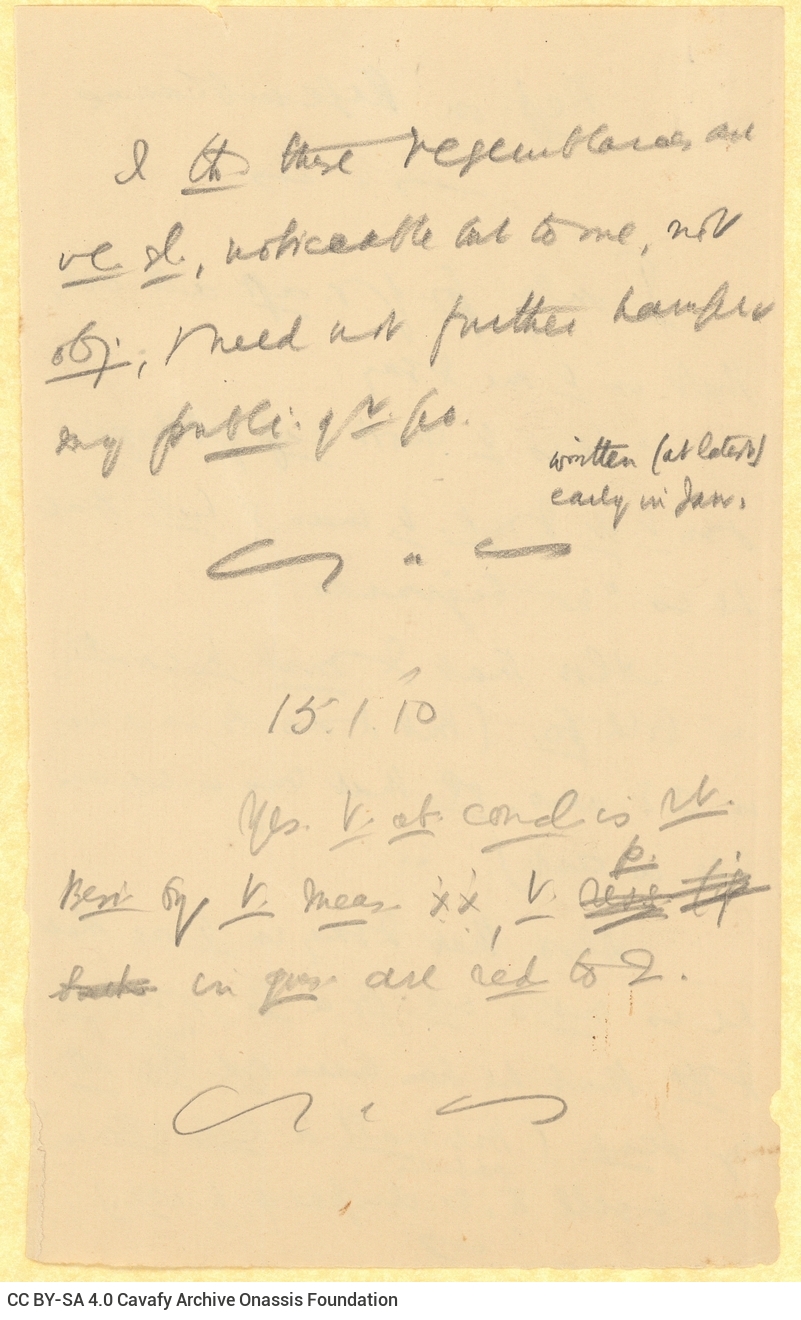 I th these resemblances are
ve. sl., noticeable but to me, not
obj, & need not further hamper
my publi. of r. po.
written (at latest)
early in Jan.
15.1.10
Yes. V. ab. cond is rt.
p.
Besi by V. meas xx, V.
in ques are red to 2.
CC BY-SA 4.0 Cavafy Archive Onassis Foundation